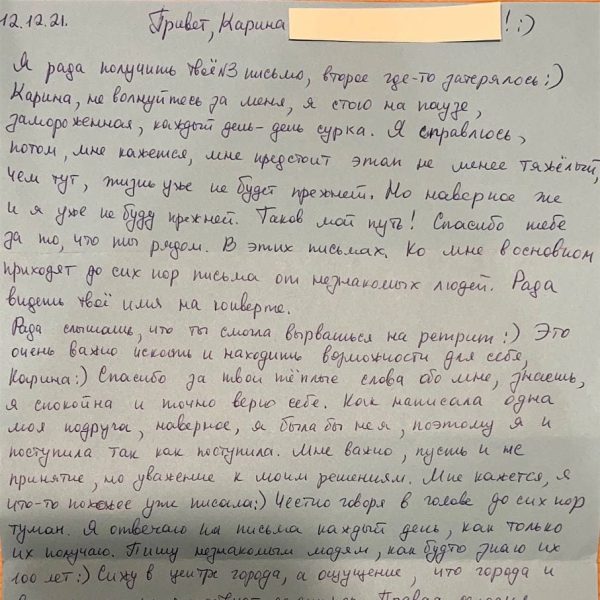 12.12.21. Привет, Карина !:)
Я рада получить твоё №3 письмо, второе где-то затерялось:)
Карина, не волнуйтесь за меня, я стою на паузе,
замороженная, каждый день-день сурка. Я справлюсь,
потом, мне кажется, мне предстоит этап не менее тяжёлый,
чем тут, жизнь уже не будет прежней. Но наверное же
и я уже не буду прежней. Таков мой путь! Спасибо тебе
за то, что ты рядом. В этих письмах. Ко мне в основном
приходят до сих пор письма от незнакомых людей. Рада
видеть твоё имя на конверте.
Рада слышать, что ты смогла вырваться на ретрит:) Это
очень важно искать и находить возможности для себя,
Карина:) Спасибо за твои тёплые слова обо мне, знаешь,
я спокойна и точно верю себе. Как написала одна
моя подруга, наверное, я была бы не я, поэтому я и
поступила так как поступила. Мне важно, пусть и не
принятие, но уважение к моим решениям. Мне кажется, я
что-то похожее уже писала:) Честно говоря в голове до сих пор
туман. Я отвечаю на письма каждый день, как только
их получаю. Пишу незнакомым людям, как будто знаю их
100 лет:) Сижу в центре города, а ощущение, что города и